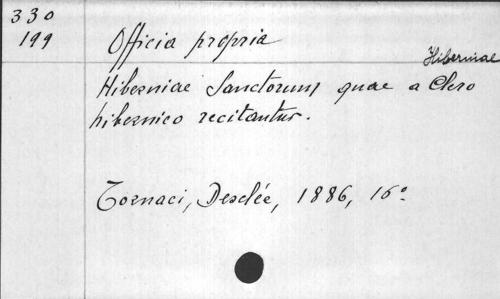 330
199
Officia propria
Hiberniae
Hiberniae Sanctorum quae a Clero
hibernico recitantur.
Tornaci, Desclée, 1886, 16°.